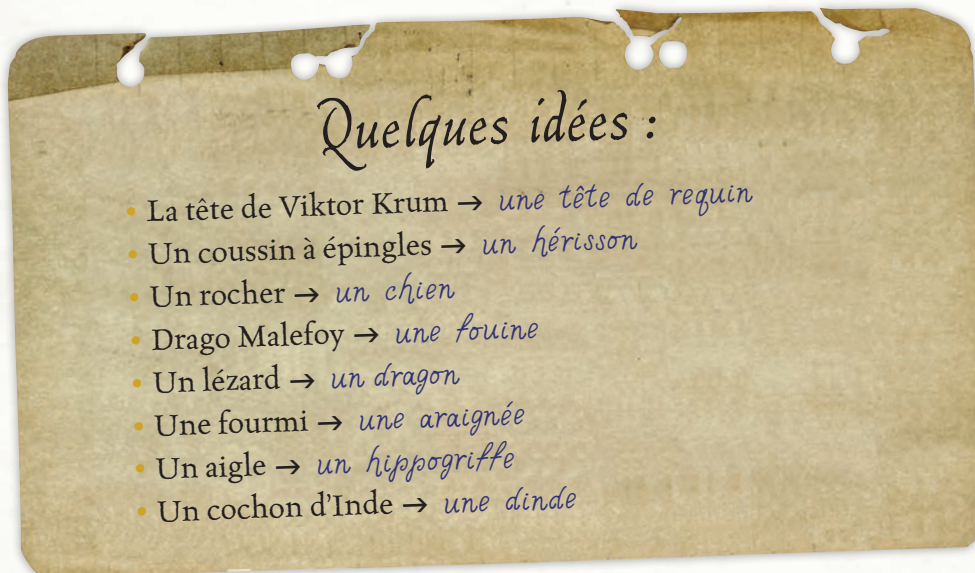 Quelques idées :
• La tête de Viktor Krum → une tête de requin
• Un coussin à épingles → un hérisson
• Un rocher → un chien
• Drago Malefoy → une fouine
• Un lézard → un dragon
• Une fourmi → une araignée
• Un aigle → un hippogriffe
• Un cochon d’Inde → une dinde